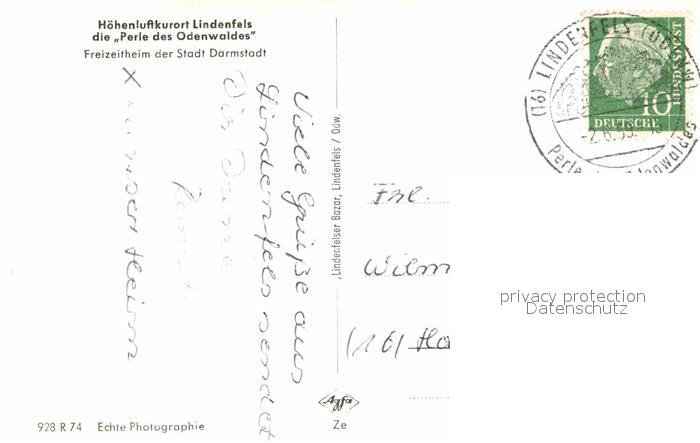 Höhenluftkurort Lindenfels
die „Perle des Odenwaldes"
Freizeitheim der Stadt Darmstadt
Viele Grüße aus
Lindenfels sendet
Dir Deine
X unser Heim
"Lindenfelser Bazar, Lindenfels / Odw.
(16) LINDENFELS (ODENW)
Perle des Odenwaldes
DEUTSCHE
BUNDESPOST
10
Frl.
Wilm
(16) Ha
privacy protection
Datenschutz
Agfa
Ze
928 R 74 Echte Photographie